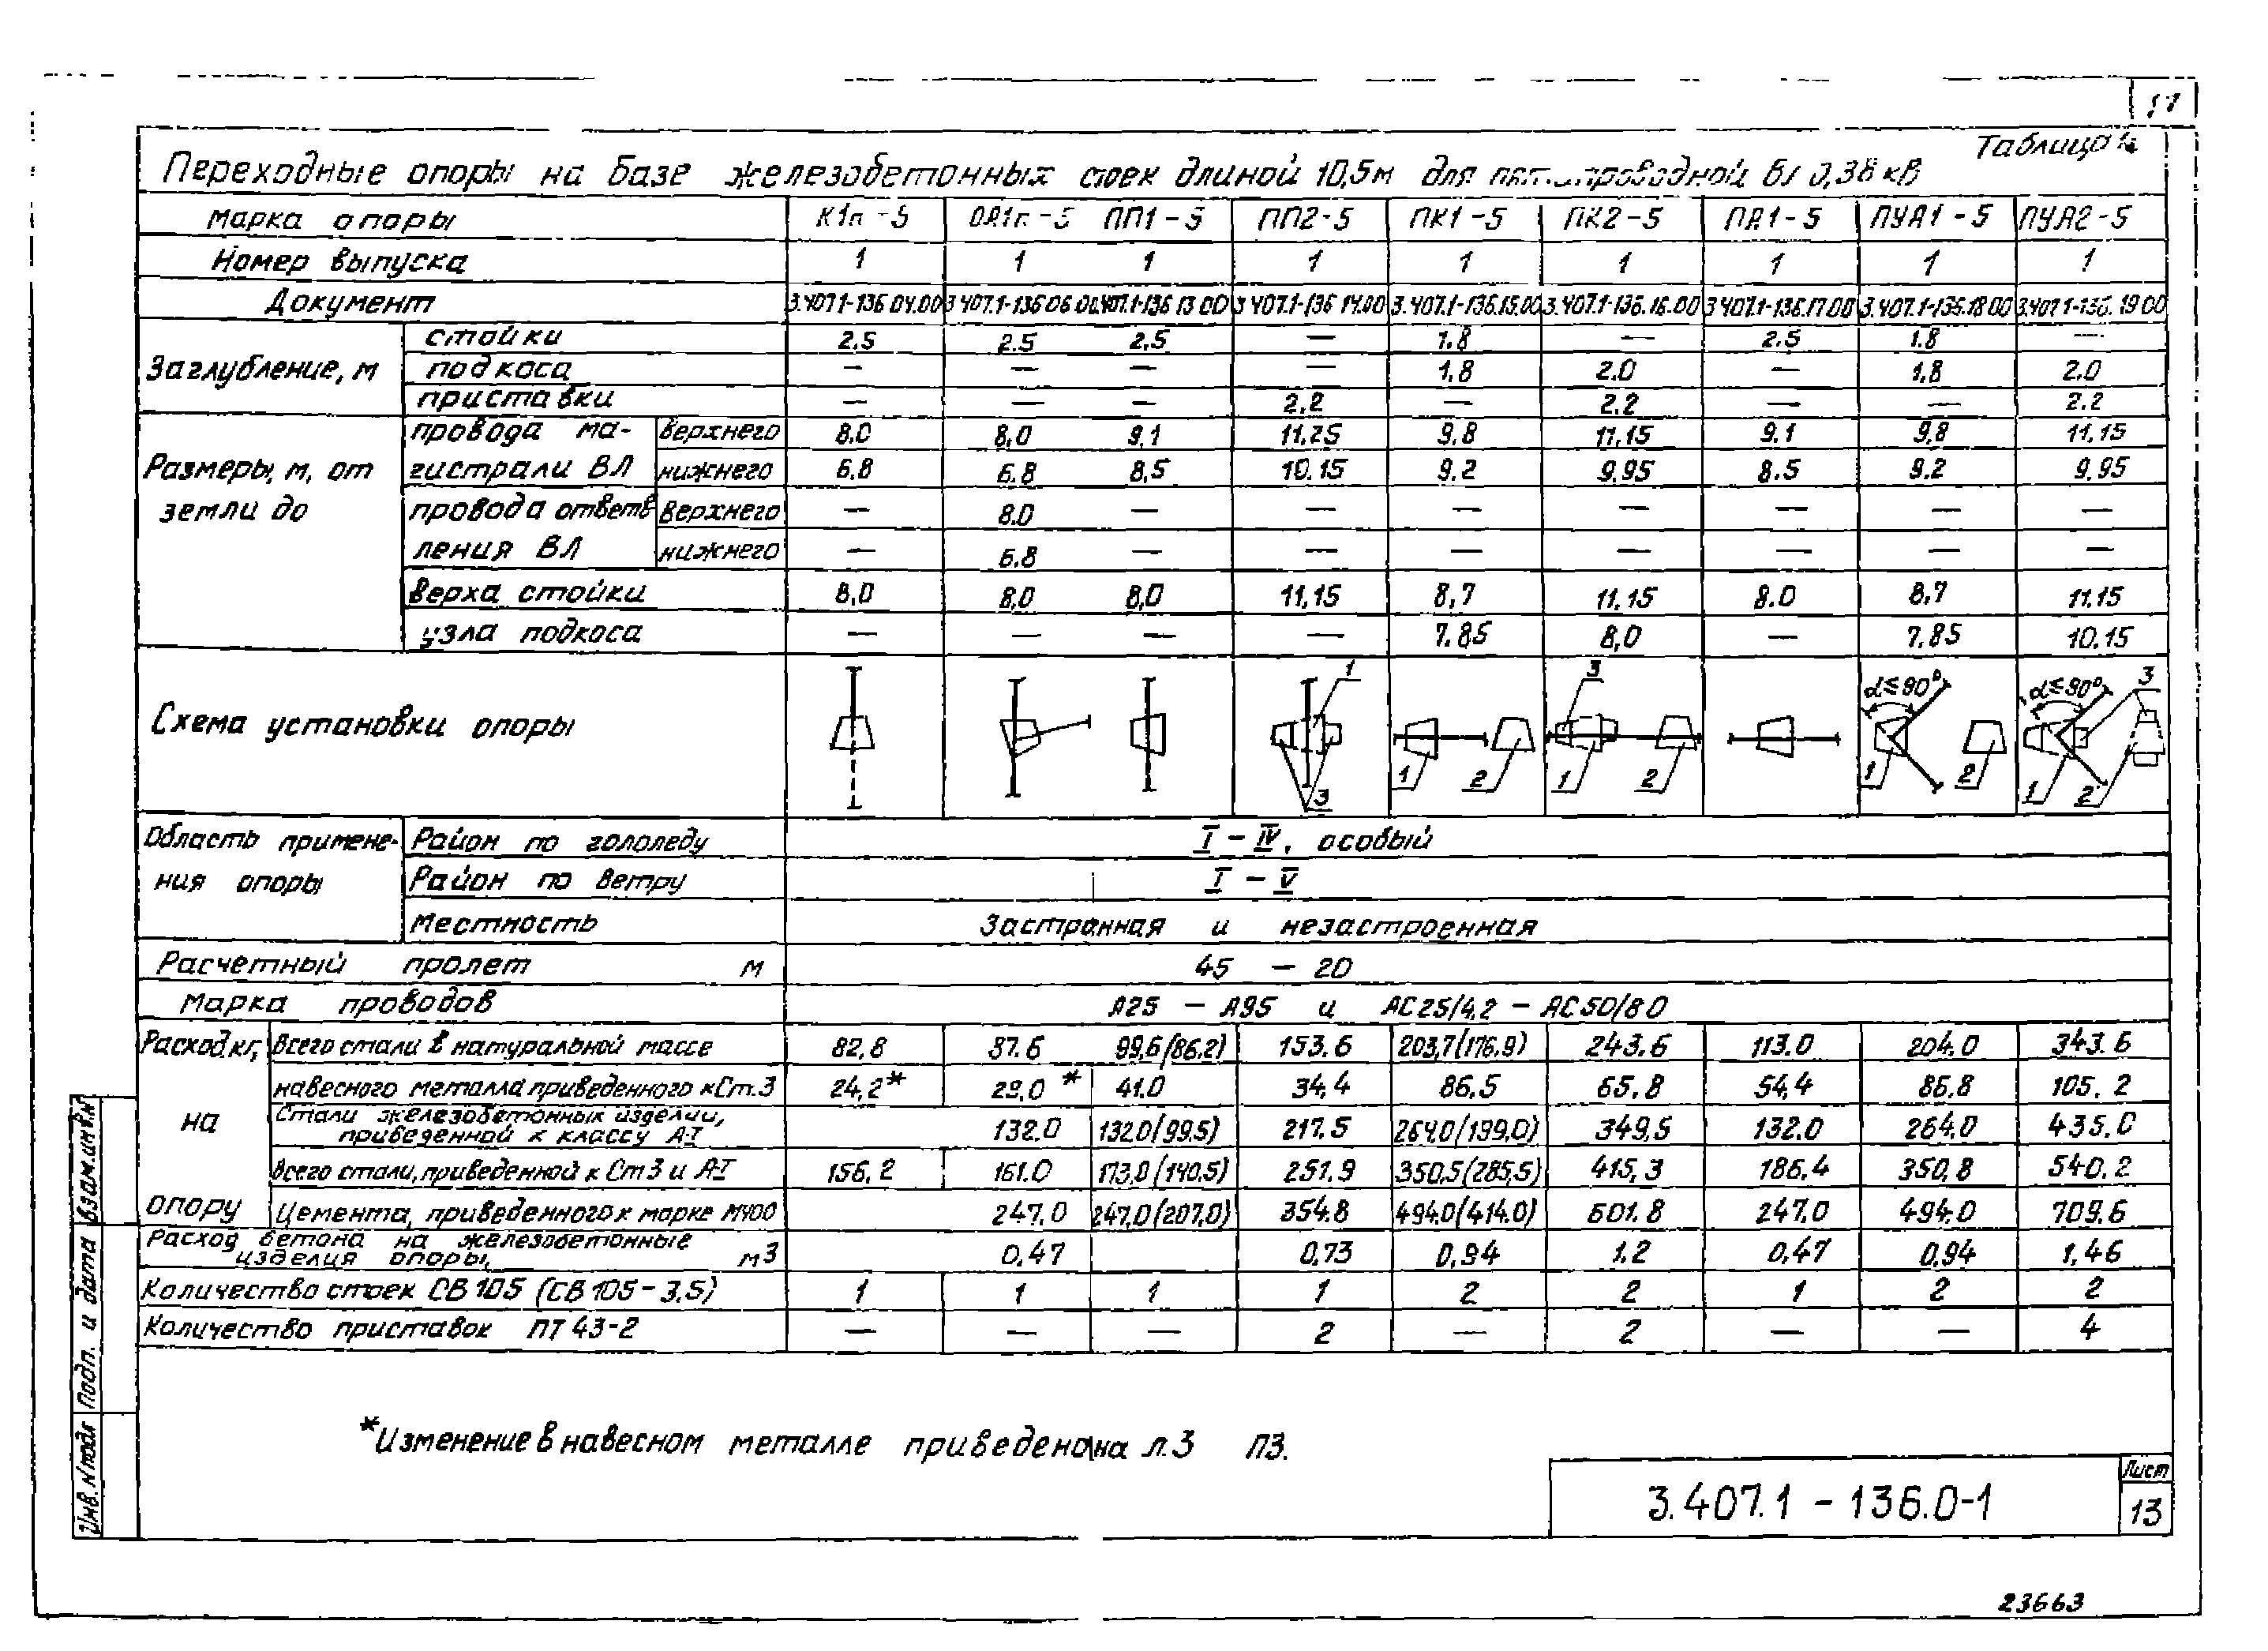 17
Таблица
Переходные опоры на базе железобетонных стоек длиной 10,5м для 0,38 кВ
Марка опоры К1п-5 ОА1п-5 ПП1-5 ПП2-5 ПК1-5 ПК2-5 ПА1-5 ПУА1-5 ПУА2-5
Номер выпуска 1 1 1 1 1 1 1 1 1
Документ 3.407.1-136 04.00 3 407.1-136 06 00 407.1-136 13 00 3 407.1-136 14.00 3.407.1-136.15.00 3.407.1-136.16.00 3 407.1-136.17.00 3.407.1-136.18 00 3.407 1-136. 19 00
Заглубление, м стойки 2.5 2.5 2,5 — 1.8 — 2.5 1.8 —
подкоса — — — — 1,8 2.0 — 1,8 2.0
приставки — — — 2.2 — 2.2 — — 2.2
Размеры, м, от земли до провода магистрали ВЛ верхнего 8.0 8,0 9,1 11,25 9,8 11,15 9,1 9,8 11,15
нижнего 6.8 6.8 8,5 10.15 9.2 9,95 8.5 9.2 9,95
провода ответвления ВЛ верхнего — 8.0 — — — — — — —
нижнего — 6.8 — — — — — — —
верха стойки 8,0 8,0 8,0 11,15 8,7 11,15 8.0 8,7 11.15
узла подкоса — — — — 7.85 8,0 — 7,85 10.15
Схема установки опоры
1 3
1 2
3 1 2
α≤90° 1 2
α≤90° 3 1 2
Область применения опоры Район по гололеду I – IV, особый
Район по ветру I – V
Местность Застранная и незастроенная
Расчетный пролет м 45 – 20
Марка проводов А25 – А95 и АС25/4,2 – АС50/8 0
Расход, кг, на опору Всего стали в натуральной массе 82,8 87.6 99,6(86.2) 153.6 203,7(176.9) 243.6 113.0 204.0 343.6
навесного металла приведенного к Ст.3 24,2* 29,0* 41.0 34,4 86,5 65,8 54,4 86,8 105.2
Стали железобетонных изделий, приведенной к классу А-I 132.0 132.0(99.5) 217.5 264.0(199.0) 349,5 132.0 264,0 435.0
Всего стали, приведенной к Ст 3 и А-I 156,2 161.0 173,0(140.5) 251.9 350,5(285,5) 415,3 186,4 350,8 540.2
Цемента, приведенного к марке М400 247,0 247,0(207,0) 354.8 494.0(414.0) 601.8 247.0 494.0 709.6
Расход бетона на железобетонные изделия опоры, м3 0,47 0,73 0,94 1.2 0,47 0,94 1,46
Количество стоек СВ 105 (СВ 105-3,5) 1 1 1 1 2 2 1 2 2
Количество приставок ПТ 43-2 — — — 2 — 2 — — 4
*Изменение в навесном металле приведено на л.3 ПЗ.
Взам.инв.№
Подп. и дата
Инв. №подл
3.407.1 - 136.0-1
Лист
13
23663